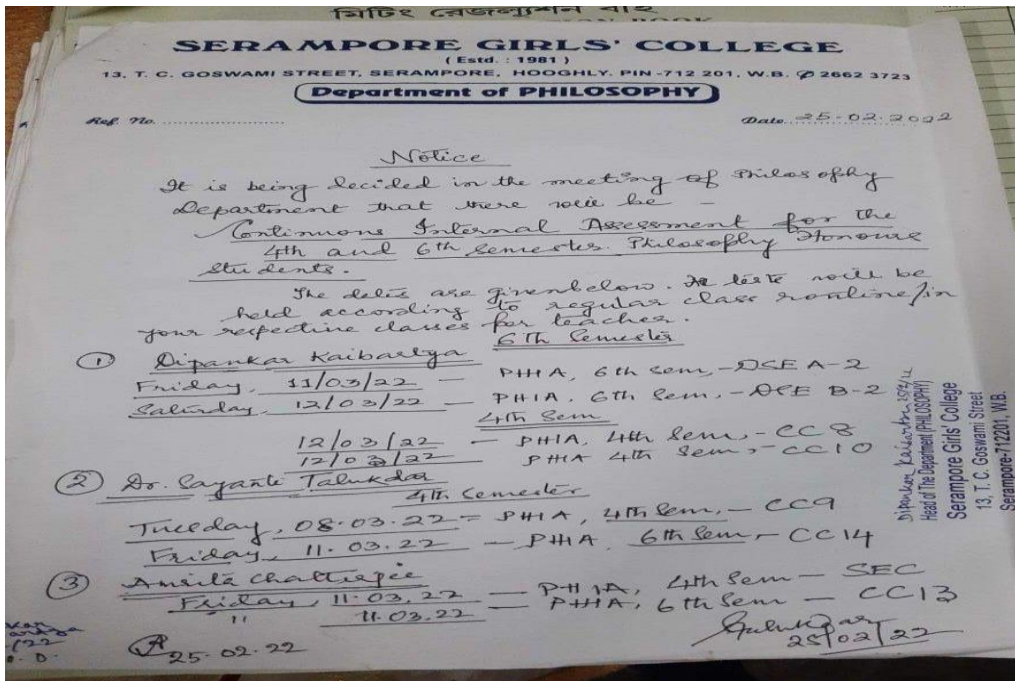 মিটিং রেজল্যুশান বই
SERAMPORE GIRLS' COLLEGE
( Estd. : 1981 )
13, T. C. GOSWAMI STREET, SERAMPORE, HOOGHLY. PIN -712 201. W.B. ✆ 2662 3723
Department of PHILOSOPHY
Ref. No. ........................
Date. 25-02-2022
Notice
It is being decided in the meeting of Philosophy
Department that there will be -
Continuous Internal Assessment for the
4th and 6th Semester Philosophy Honours
Students.
The dates are given below. tests will be
held according to regular class routine/in
your respective classes for teacher.
6th Semester
① Dipankar Kaibartya
Friday, 11/03/22 - PHIA, 6th Sem, - DSE A-2
Saturday, 12/03/22 - PHIA, 6th Sem, - DSE B-2
4th Sem
12/03/22 - PHIA, 4th Sem, - CC 8
12/03/22 - PHIA 4th Sem, - CC10
② Dr. Sayanti Talukdar
4th Semester
Tuesday, 08.03.22 = PHIA, 4th Sem, - CC9
Friday, 11.03.22 - PHIA, 6th Sem, - CC 14
③ Amrita Chatterjee
Friday, 11.03.22 - PHIA, 4th Sem - SEC
" 11.03.22 - PHIA, 6th Sem - CC13
25.02.22
25/02/22
Dipankar Kaibartya 25/2/22
Head of The Department (PHILOSOPHY)
Serampore Girls' College
13, T. C. Goswami Street
Serampore-712201, W.B.